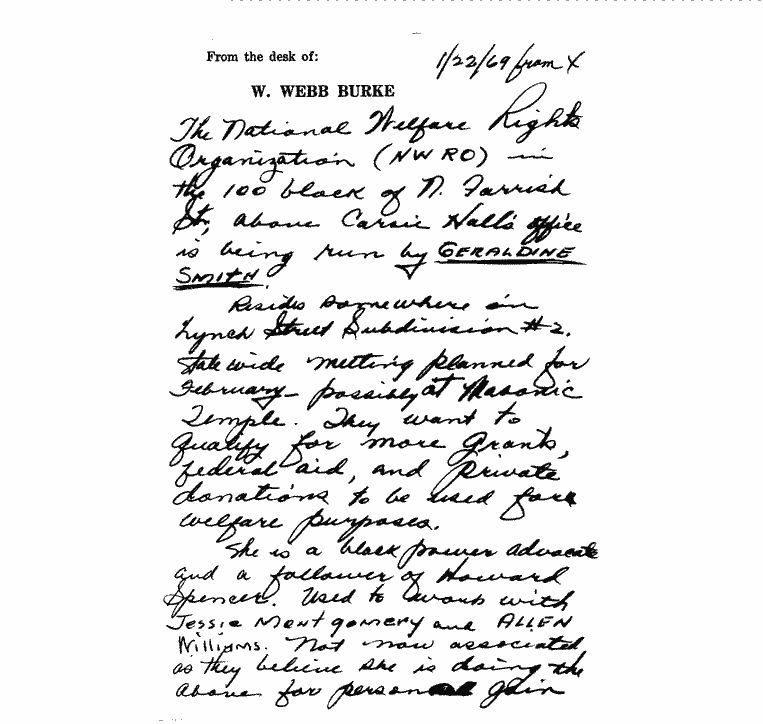 From the desk of:
1/22/69 from X
W. WEBB BURKE
The National Welfare Rights
Organization (NWRO) in
the 100 block of N. Farrish
St, above Carsie Hall's office
is being run by GERALDINE
SMITH.
Resides somewhere in
Lynch Street Subdivision #2.
State wide meeting planned for
February - possibly at Masonic
Temple. They want to
qualify for more grants,
federal aid, and private
donations to be used for
welfare purposes.
She is a black power advocate
and a follower of Howard
Spencer. Used to work with
Jessie Montgomery and ALLEN
Williams. Not now associated
as they believe she is doing the
above for personal gain